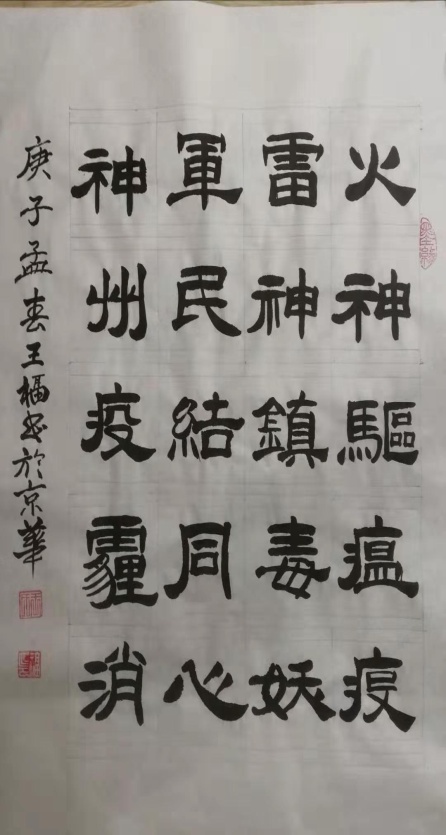 火神驅瘟疫
雷神鎮毒妖
軍民結同心
神州疫霾消
庚子孟春王福书於京華